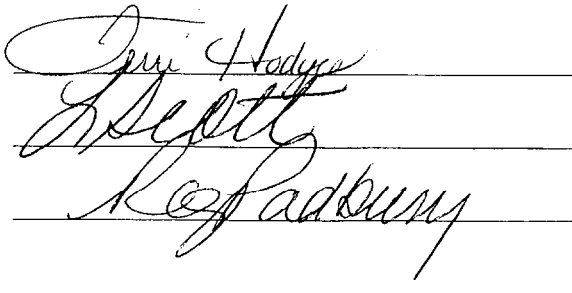 Terri Hodges
L Scott
Roy Padbury